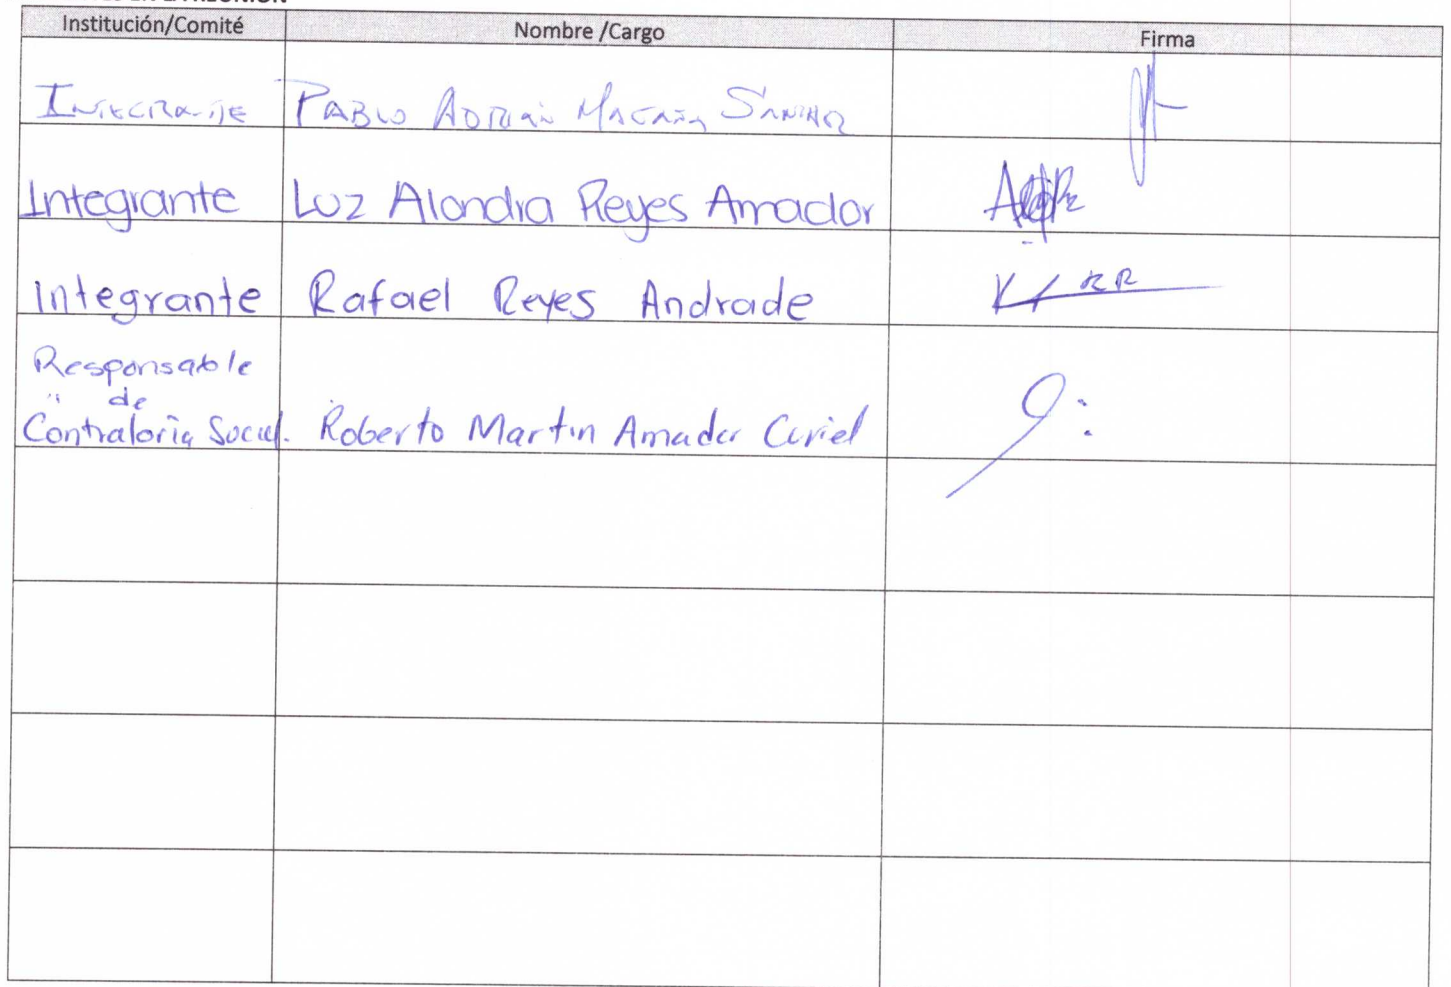 EN LA REUNIÓN
Institución/Comité Nombre /Cargo Firma
Integrante Pablo Adrián Sánchez
Integrante Luz Alondra Reyes Amador
Integrante Rafael Reyes Andrade RR
Responsable
de
Contraloría Social. Roberto Martin Amador Curiel